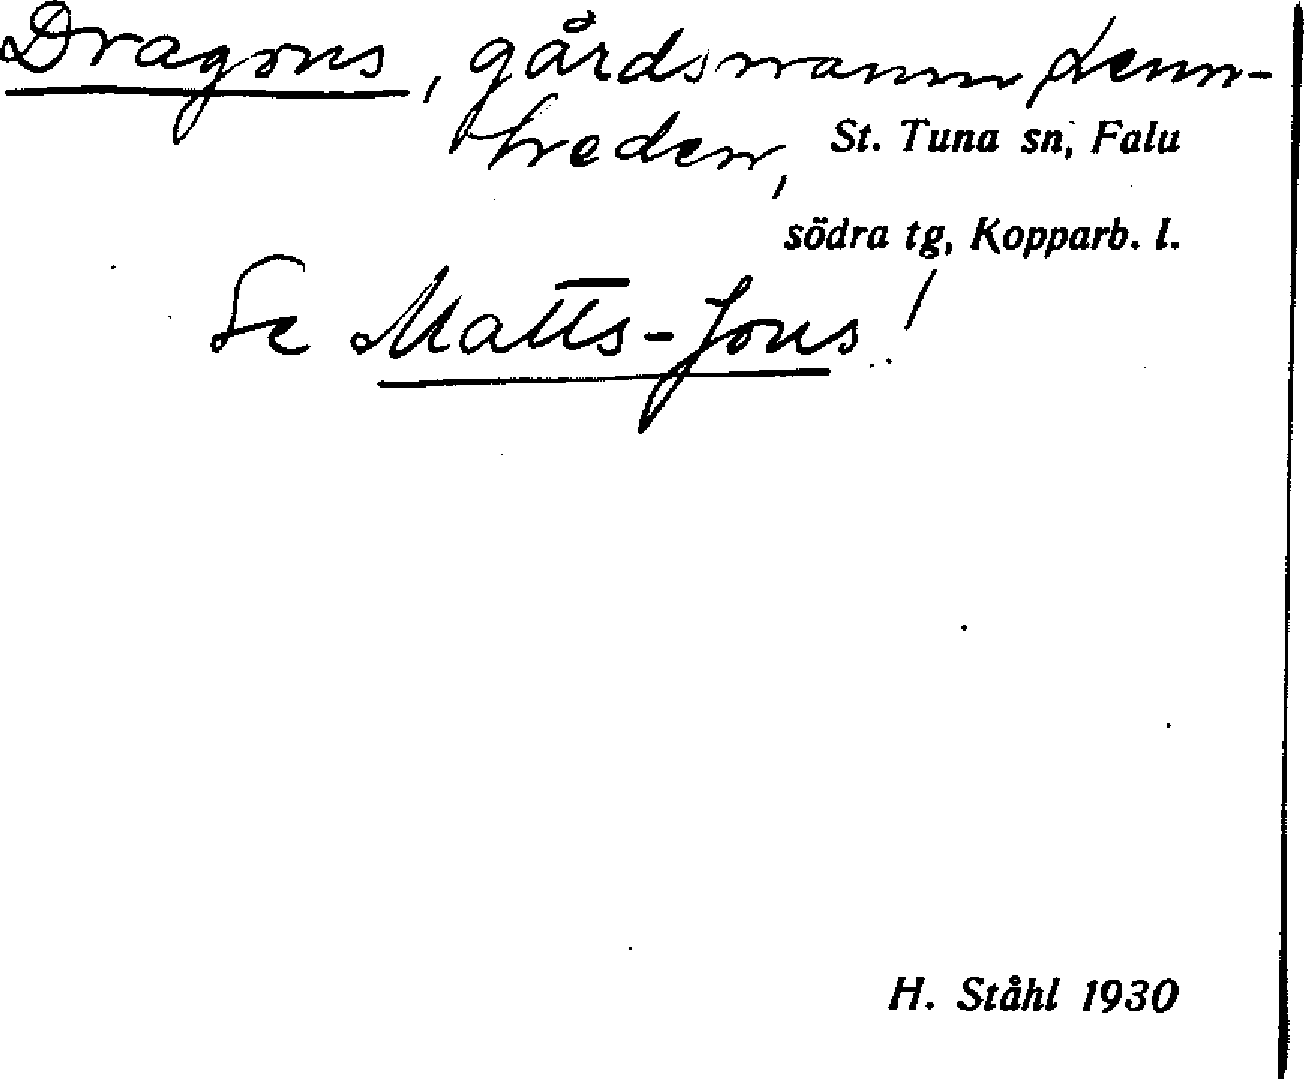 Dragons, gårdsnamn Lenn-
heden, St. Tuna sn, Falu
södra tg, Kopparb. l.
Se Matts-Jons!
H. Ståhl 1930